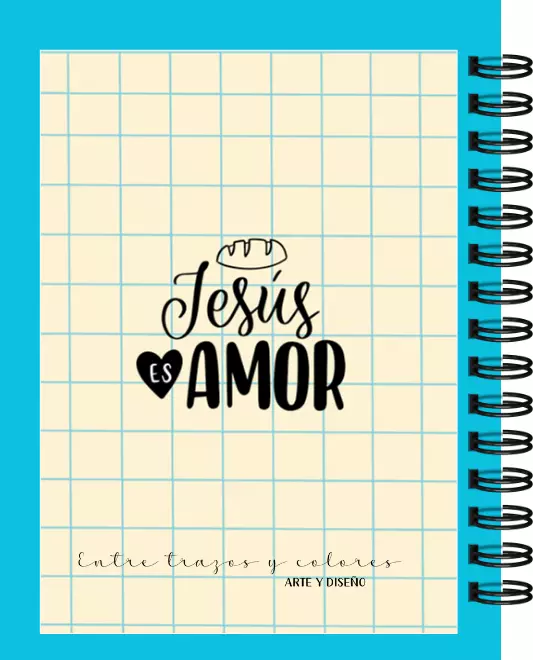 Jesús
ES AMOR
Entre trazos y colores
ARTE Y DISEÑO